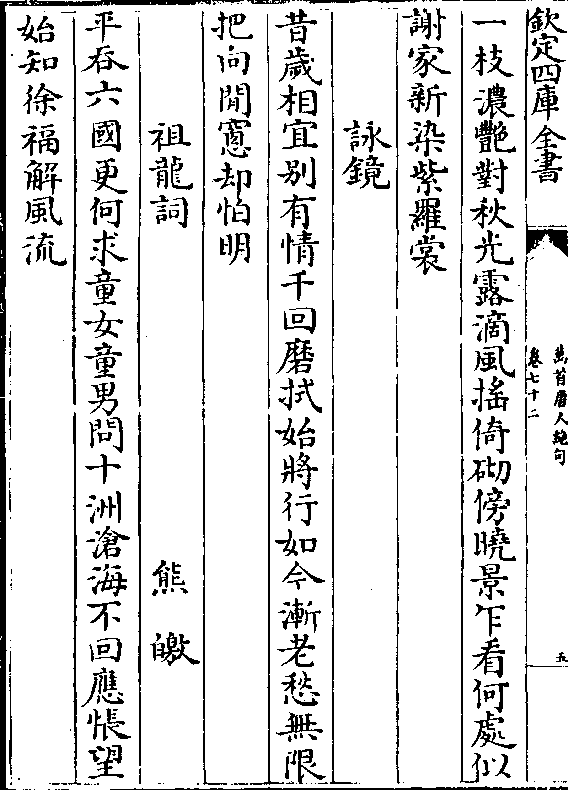 欽定四庫全書
萬首唐人絶句
卷七十二
五
一枝濃艷對秋光露滴風搖倚砌傍曉景乍看何處似
謝家新染紫羅裳
詠鏡
昔歲相宜别有情千回磨拭始將行如今漸老愁無限
把向閒窻却怕明
祖龍詞　熊皦
平吞六國更何求童女童男問十洲滄海不回應悵望
始知徐福解風流